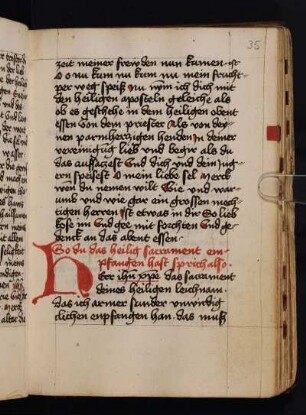 35
zeit meiner frewden nun kumen ist
O o nu kum nu kum nu mein frucht
per weg speiß Nu nym ich dich mit
den heiligen aposteln geleiche als
ob es geschehe in dem heiligen obent
essen von dem priester als von dei
nen parmherczigen henden in deiner
vereinigung lieb und begir als du
das aufsaczest Und dich und dein Jug
ern speisest O mein liebe sel merck
wen du nemen wilt Wie und war
umb und wie gar ein grossen mech
tigen herren ist etwas in dir So lieb
kose im Und gee mit forchten Und ge
denck an das abent essen
So du das heilig sacrament em
pfangen hast sprich also
Her ihu xpe das sacrament
deines heiligen leichnam
das ich armer sunder unwirdig
clichen enpfangen han das muß